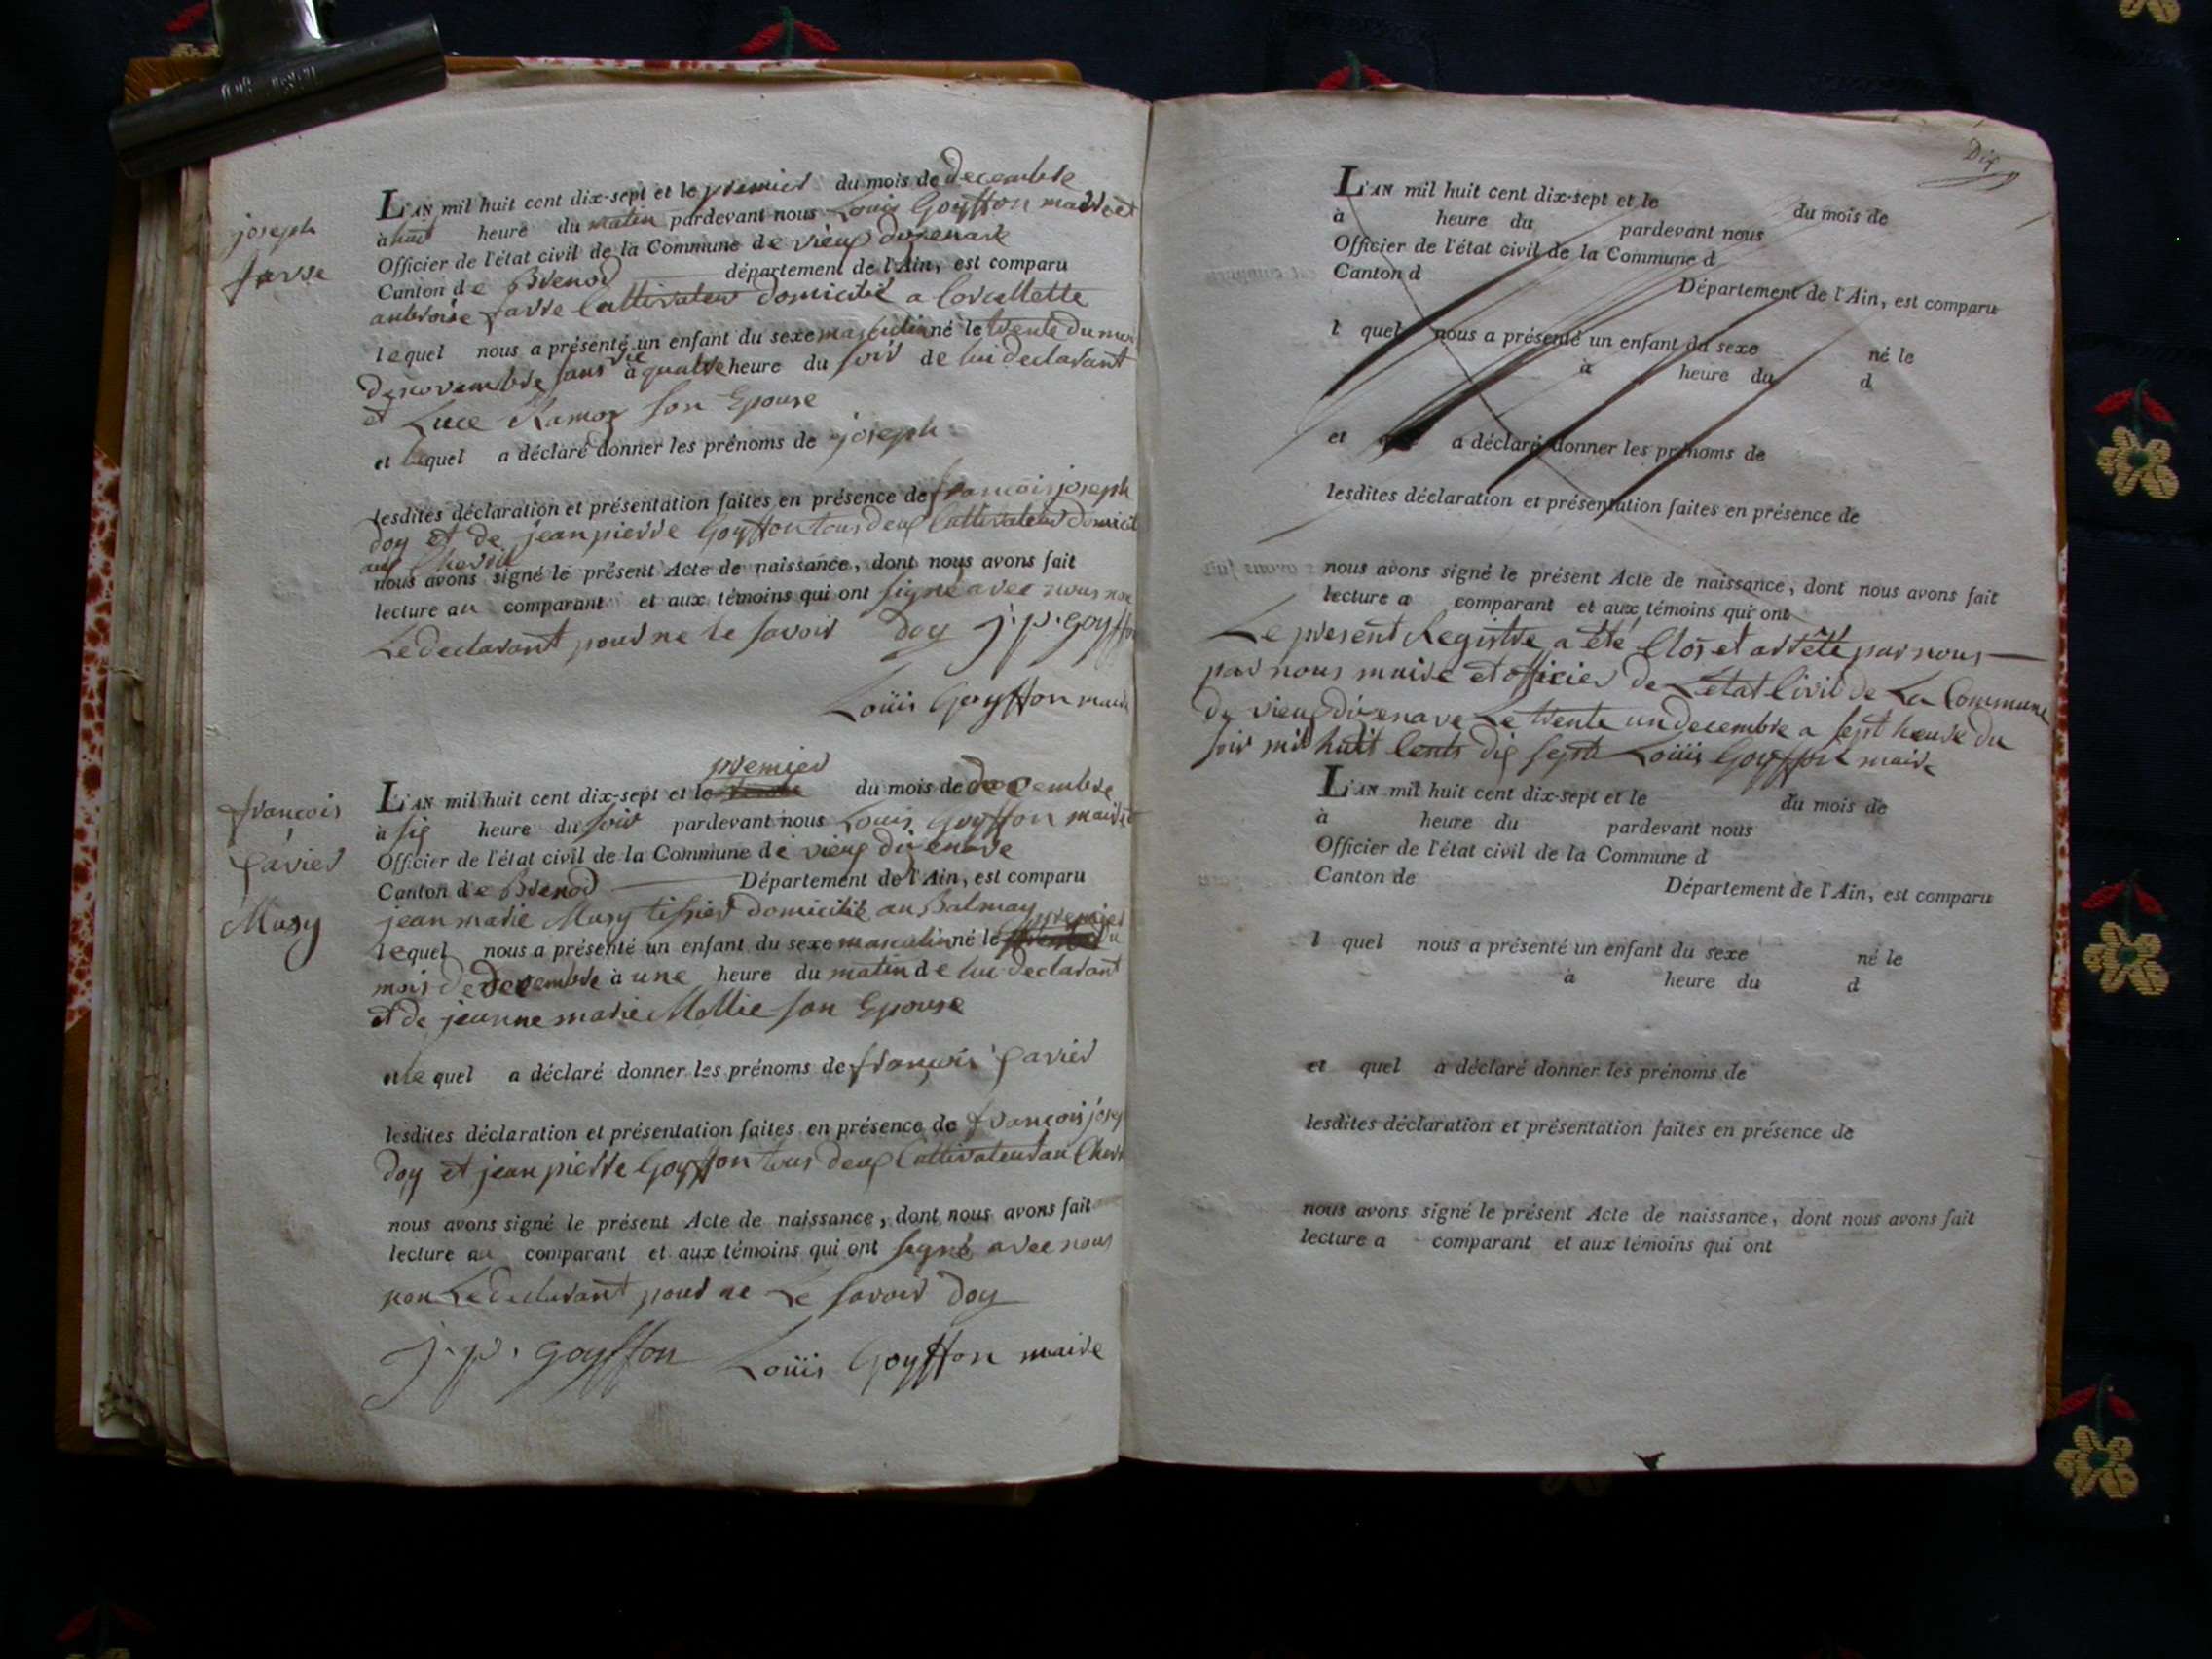 joseph
farre
L'AN mil huit cent dix-sept et le premier du mois de decembre
à huit heure du matin pardevant nous Louis Goyffon maire et
Officier de l'état civil de la Commune de vieux dizenave
Canton de Brenod département de l'Ain, est comparu
anbroise farre Cultivateur domicilié a Corcellette
lequel nous a présenté un enfant du sexe masculin né le trente du moi
de novembre sans vie à quatre heure du soir de lui declarant
et Luce Ramoz son Epouse
et lequel a déclaré donner les prénoms de joseph
lesdites déclaration et présentation faites en présence de françois joseph
doy et de jean pierre Goyffon tous deux Cultivateur domicil
au
nous avons signé le présent Acte de naissance, dont nous avons fait
lecture au comparant et aux témoins qui ont signé avec nous non
Le declarant pour ne le savoir doy j. p. goyffon
Loüis Goyffon maire
françois
Xavier
Mugy
premier
L'AN mil huit cent dix-sept et le du mois de decembre
à six heure du soir pardevant nous Louis Goyffon maire et
Officier de l'état civil de la Commune de vieux dizenave
Canton de Brenod Département de l'Ain, est comparu
jean marie Mugy tissier domicilié au Balmay
premier
lequel nous a présenté un enfant du sexe masculin né le du
mois de decembre à une heure du matin de lui declarant
et de jeanne marie Mollie son Epouse
et le quel a déclaré donner les prénoms de françois Xavier
lesdites déclaration et présentation faites en présence de françois josep
doy et jean pierre Goyffon tous deux Cultivateur au
nous avons signé le présent Acte de naissance, dont nous avons fait
lecture au comparant et aux témoins qui ont signé avec nous
non Le declarant pour ne Le savoir doy
j. p. goyffon Loüis Goyffon maire
Dix
L'AN mil huit cent dix-sept et le du mois de
à heure du pardevant nous
Officier de l'état civil de la Commune d
Canton d Département de l'Ain, est comparu
l quel nous a présenté un enfant du sexe né le
à heure du d
et quel a déclaré donner les prénoms de
lesdites déclaration et présentation faites en présence de
nous avons signé le présent Acte de naissance, dont nous avons fait
lecture a comparant et aux témoins qui ont
Le present Registre a été Clos et arrêté par nous
par nous maire et officier de L'etat Civil de La Commune
de vieux dizenave Le trente un decembre a sept heure du
soir mil huit Cents dix sept Loüis Goyffon maire
L'AN mil huit cent dix-sept et le du mois de
à heure du pardevant nous
Officier de l'état civil de la Commune d
Canton de Département de l'Ain, est comparu
l quel nous a présenté un enfant du sexe né le
à heure du d
et quel a déclaré donner les prénoms de
lesdites déclaration et présentation faites en présence de
nous avons signé le présent Acte de naissance, dont nous avons fait
lecture a comparant et aux témoins qui ont